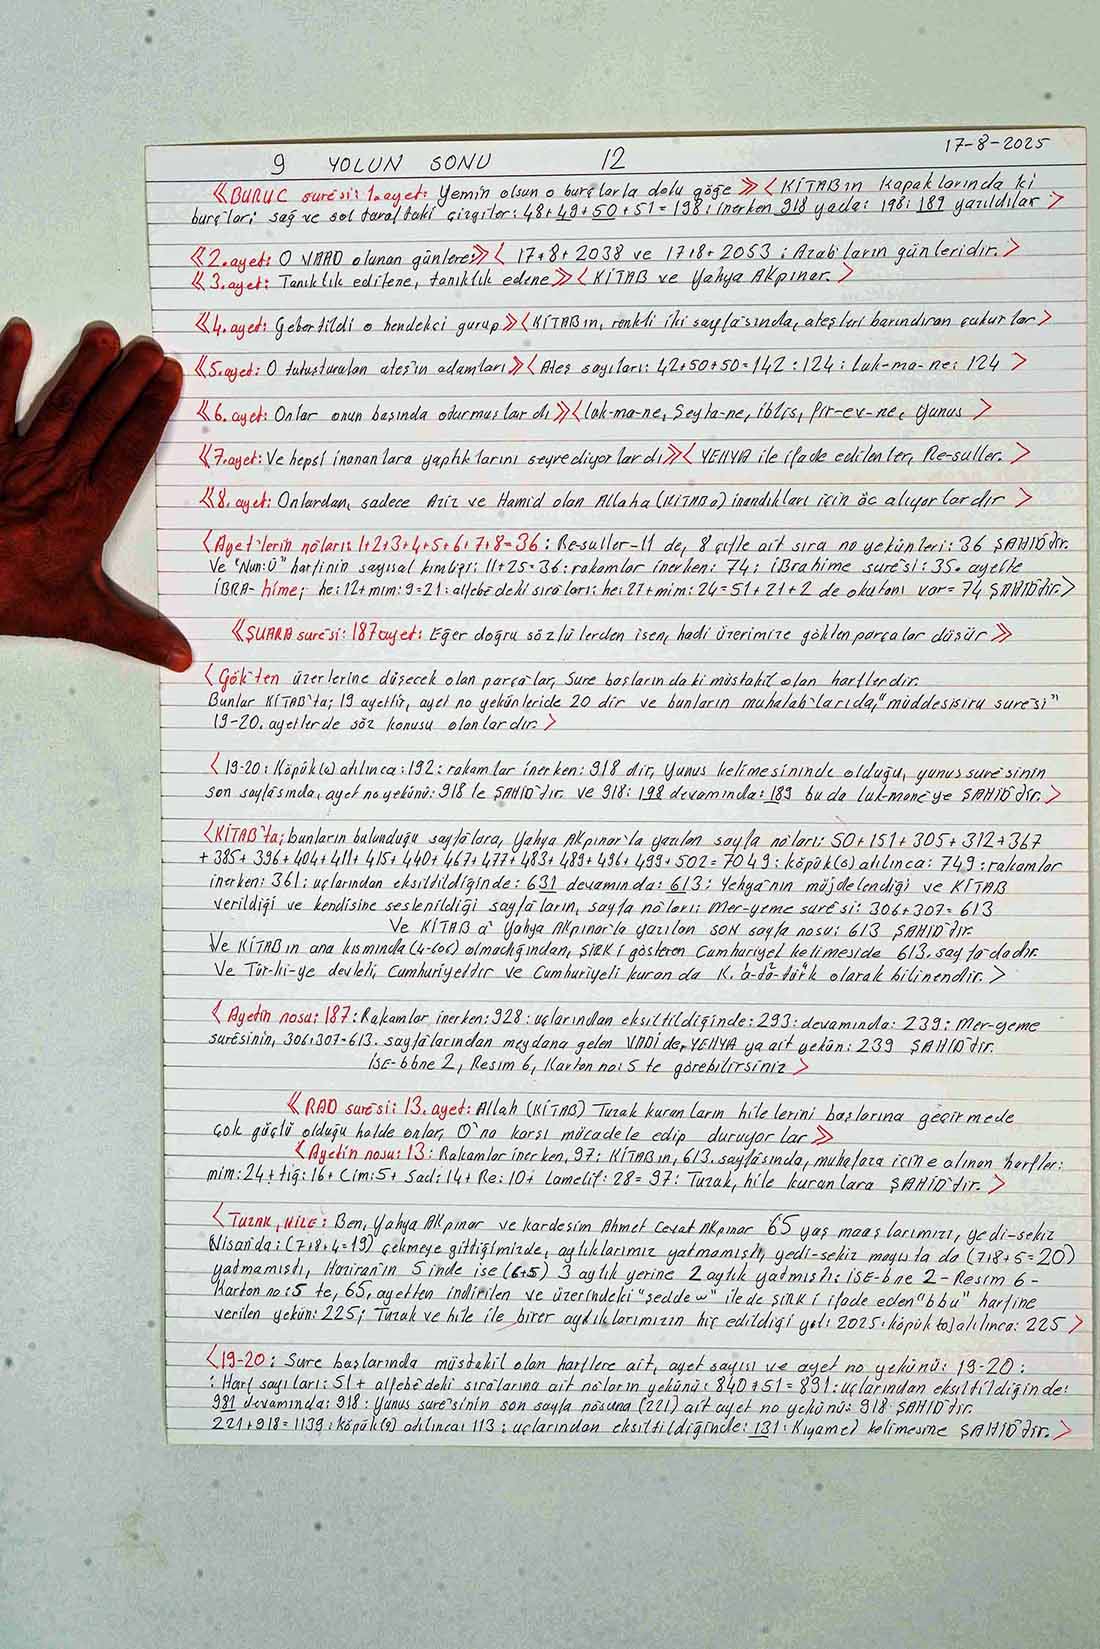 17-8-2025
9 YOLUN SONU 12
《BURUC suresi: 1.ayet: Yemin olsun o burçlarla dolu göğe》〈KİTAB'ın kapaklarında ki
burçlar; sağ ve sol taraftaki çizgiler: 48+49+50+51=198: inerken 918 yada: 198: 189 yazıldılar〉
《2.ayet: O VAAD olunan günlere:》〈17+8+2038 ve 17+8+2053: Azab'ların günleridir.〉
《3.ayet: Tanıklık edilene, tanıklık edene》〈KİTAB ve Yahya Akpınar.〉
《4.ayet: Gebertildi o hendekçi gurup》〈KİTAB'ın, renkli iki sayfasında, ateşleri barındıran çukurlar〉
《5.ayet: O tutuşturulan ateşin adamları》〈Ateş sayıları: 42+50+50=142:124: Luk-ma-ne: 124〉
《6.ayet: Onlar onun başında oturmuşlardı》〈Luk-ma-ne, Seyta-ne, İblis, Fir-ev-ne, Yunus〉
《7.ayet: Ve hepsi inananlara yaptıklarını seyrediyorlardı》〈YEHYA ile ifade edilenler, Re-suller.〉
《8.ayet: Onlardan, sadece Aziz ve Hamid olan Allaha (KİTABa) inandıkları için öc alıyorlardır〉
〈Ayet'lerin no'ları: 1+2+3+4+5+6+7+8=36: Re-suller-11 de, 8 çifte ait sıra no yekünleri: 36 ŞAHİD'dir.
Ve "Nun:Ü" harfinin sayısal kimliği: 11+25=36: rakamlar inerken: 74: İbrahime suresi: 35. ayette
İBRA-hime; he: 12+mim: 9=21: alfebe'deki sıraları: he: 27+mim: 24=51+21+2 de okutanı var=74 ŞAHİD'dir.〉
《ŞUARA suresi: 187ayet: Eğer doğru sözlülerden isen, hadi üzerimize gökten parçalar düşür》
〈Gök'ten üzerlerine düşecek olan parçalar, Sure başlarında ki müstakil olan harflerdir.
Bunlar KİTAB'ta; 19 ayettir, ayet no yekünleride 20 dir ve bunların muhatab'larıda, "müddesisiru suresi"
19-20. ayetlerde söz konusu olanlardır.〉
〈19-20: Köpük(0) atılınca: 192: rakamlar inerken: 918 dir, Yunus kelimesininde olduğu, yunus suresinin
son sayfasında, ayet no yekünü: 918 le ŞAHİD'dir. ve 918: 198 devamında: 189 bu da luk-mane'ye ŞAHİD'dir.〉
〈KİTAB'ta; bunların bulunduğu sayfalara, Yahya Akpınar'la yazılan sayfa no'ları: 50+151+305+312+367
+385+396+404+411+415+440+467+477+483+489+496+499+502=7049: köpük(0) atılınca: 749: rakamlar
inerken: 361: uçlarından eksiltildiğinde: 631 devamında: 613: Yehya'nın müjdelendiği ve KİTAB
verildiği ve kendisine seslenildiği sayfaların, sayfa no'ları: Mer-yeme suresi: 306+307=613
Ve KİTAB a Yahya Akpınar'la yazılan SON sayfa nosu: 613 ŞAHİD'dir.
Ve KİTAB'ın ana kısmında (4-606) olmadığından, ŞİRK i gösteren Cumhuriyet kelimeside 613. sayfa'dadır.
Ve Tür-ki-ye devleti, Cumhuriyettir ve Cumhuriyeti kuran da K. a-ta-türk olarak bilinendir.〉
〈Ayetin nosu: 187: Rakamlar inerken: 928: uçlarından eksiltildiğinde: 293: devamında: 239: Mer-yeme
suresinin, 306+307=613. sayfalarından meydana gelen VADİ'de, YEHYA ya ait yekün: 239 ŞAHİD'dir.
İSE-bbne 2, Resim 6, Karton no: 5 te görebilirsiniz〉
《RAD suresi: 13.ayet: Allah (KİTAB) Tuzak kuranların hilelerini başlarına geçirmede
çok güçlü olduğu halde onlar, O'na karşı mücadele edip duruyorlar》
〈Ayetin nosu: 13: Rakamlar inerken, 97: KİTAB'ın, 613. sayfasında, muhafaza içine alınan harfler:
mim: 24+tığ: 16+Cim: 5+Sad: 14+Re: 10+Lamelif: 28=97: Tuzak, hile kuranlara ŞAHİD'dir.〉
〈TUZAK, HİLE: Ben, Yahya Akpınar ve kardeşim Ahmet Cevat Akpınar 65 yaş maaşlarımızı, yedi-sekiz
Nisan'da: (7+8+4=19) çekmeye gittiğimizde, aylıklarımız yatmamıştı, yedi-sekiz mayıs ta da (7+8+5=20)
yatmamıştı, Haziran'ın 5 inde ise (6+5) 3 aylık yerine 2 aylık yatmıştı: İSE-bne 2-Resim 6-
Karton no: 5 te, 65. ayetten indirilen ve üzerindeki "şedde ω" ile de ŞİRK i ifade eden "bbu" harfine
verilen yekün: 225; Tuzak ve hile ile birer aylıklarımızın hiç edildiği yıl: 2025: köpük (0) atılınca: 225〉
〈19-20: Sure başlarında müstakil olan harflere ait, ayet sayısı ve ayet no yekünü: 19-20:
: Harf sayıları: 51+alfebe'deki sıralarına ait no'ların yekünü: 840+51=891: uçlarından eksiltildiğinde:
981 devamında: 918: Yunus suresinin son sayfa nosuna (221) ait ayet no yekünü: 918 ŞAHİD'dir.
221+918=1139: köpük(9) atılınca: 113: uçlarından eksiltildiğinde: 131: Kıyamet kelimesine ŞAHİD'dir.〉